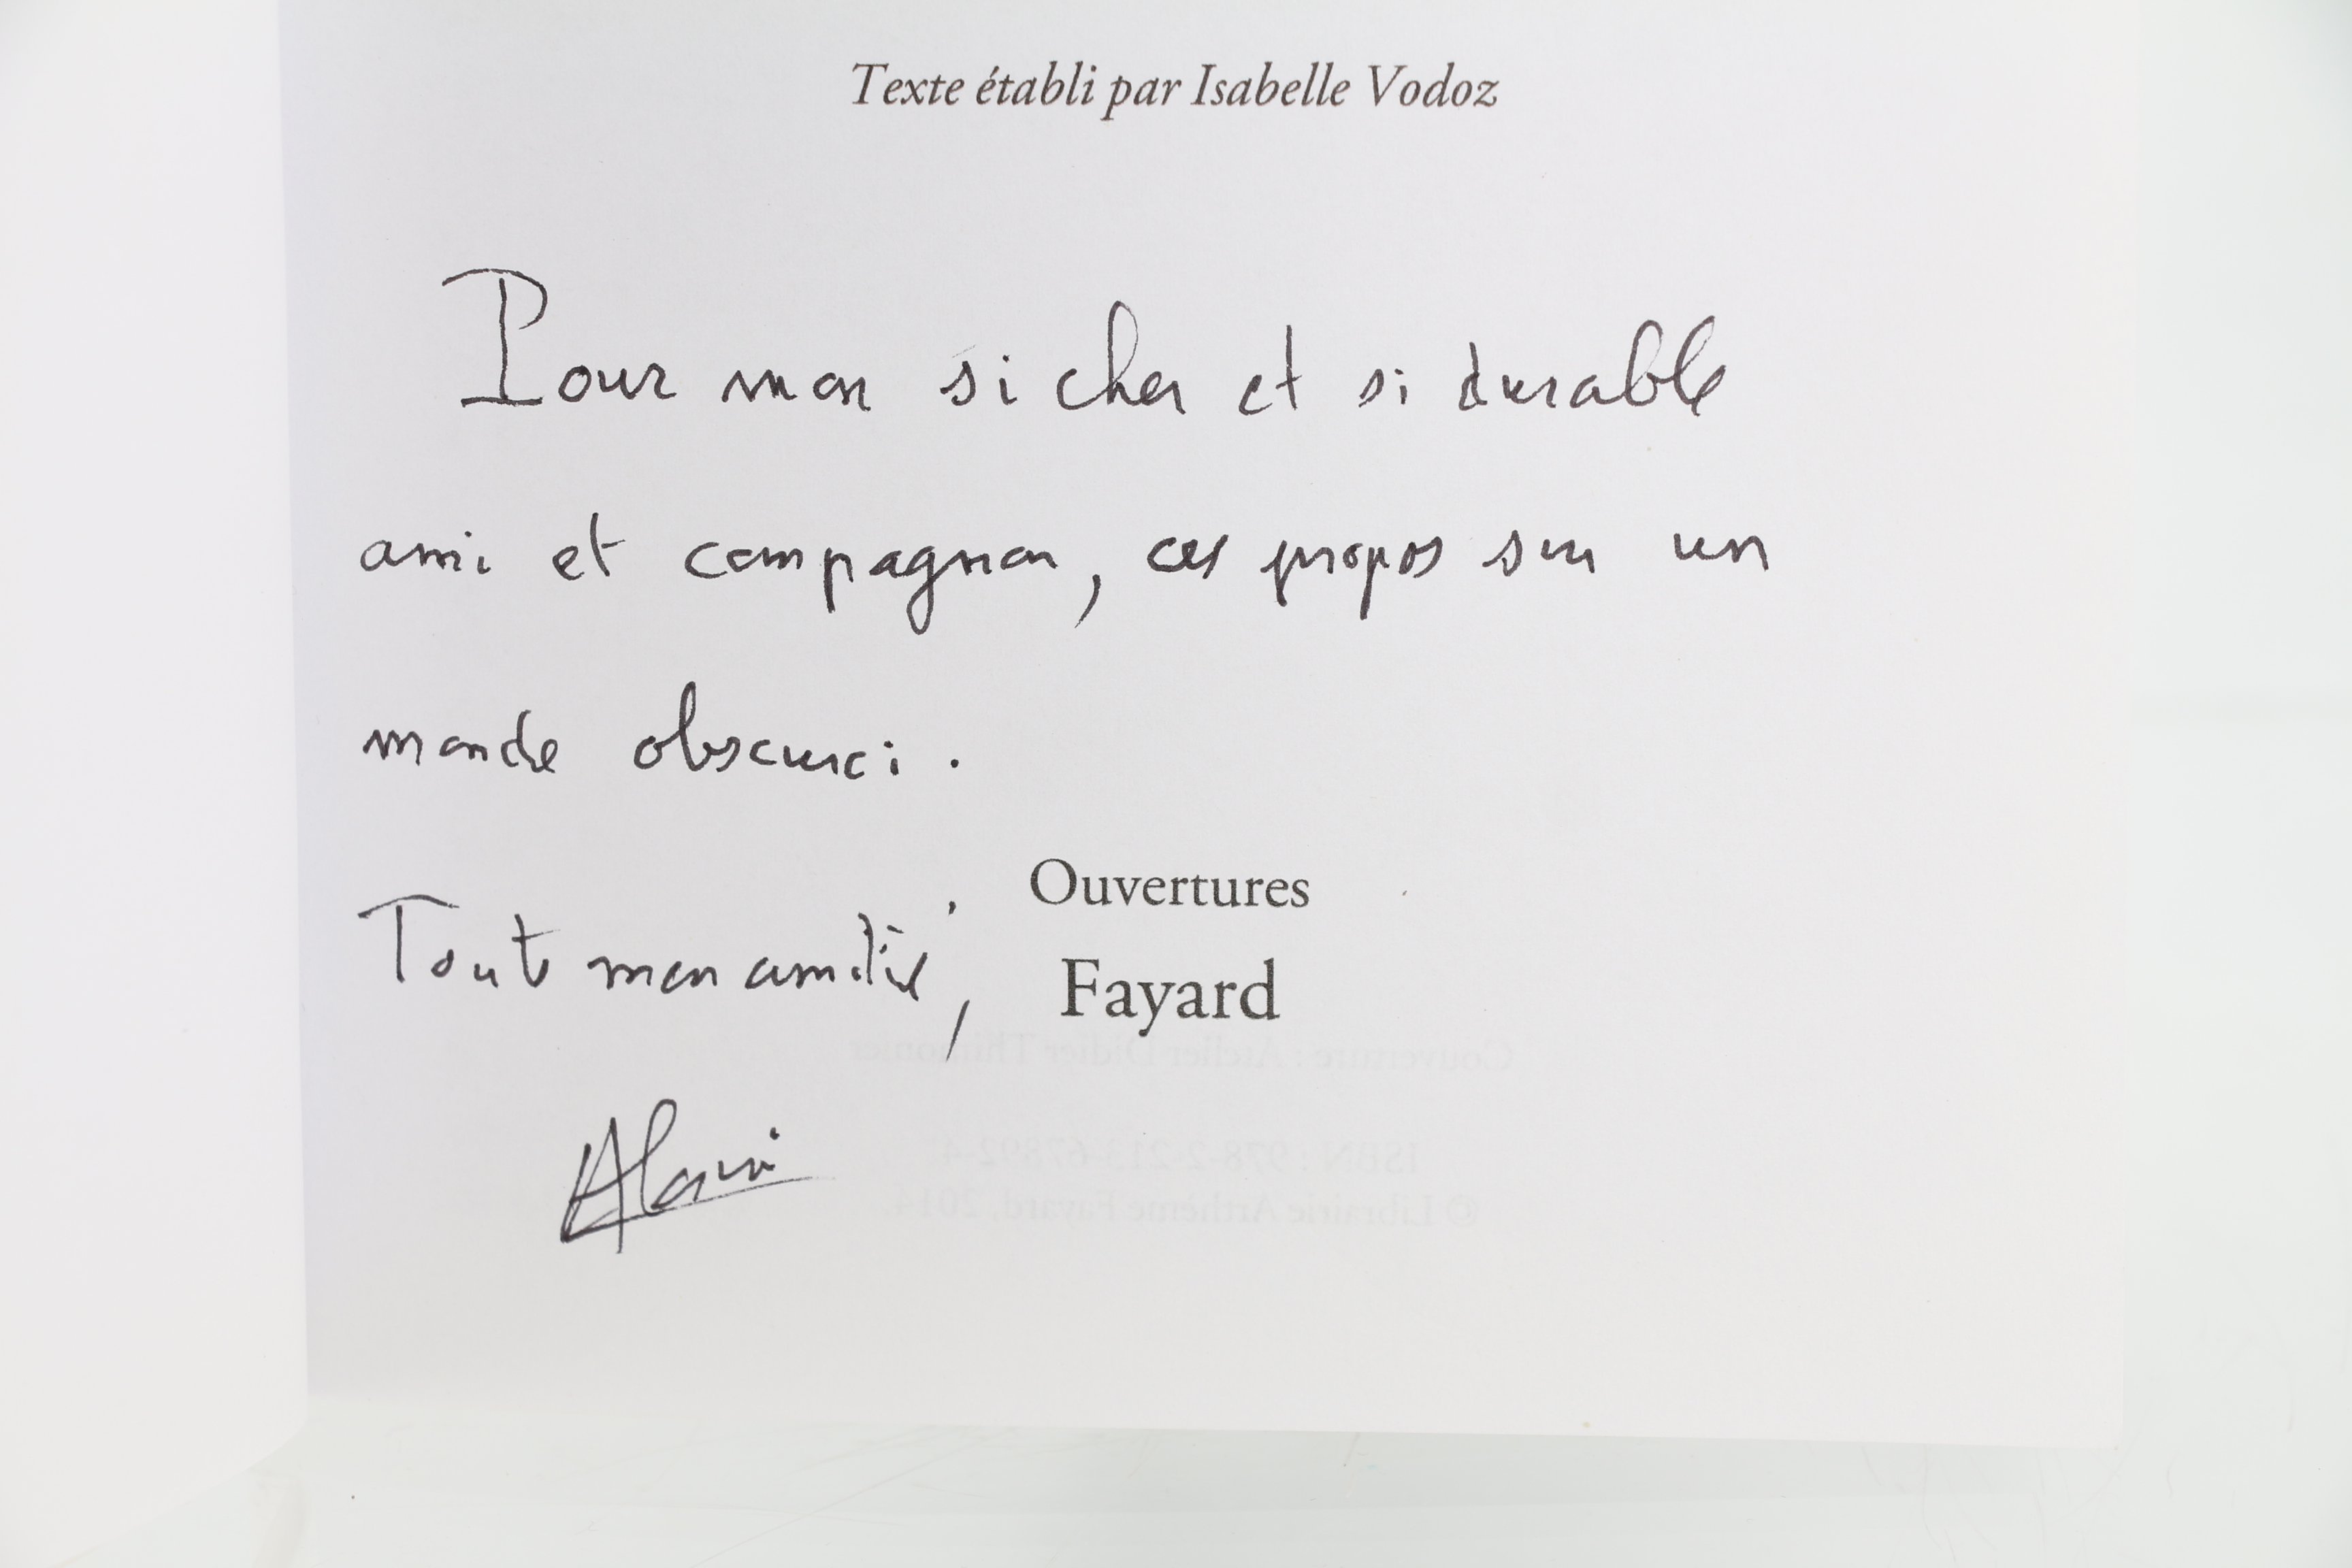 Texte établi par Isabelle Vodoz
Pour mon si cher et si durable
ami et compagnon, ces propos sur un
monde obscurci.
Ouvertures
Tout mon amitié,
Fayard
Couverture : Atelier Didier Thimonier
Alain
ISBN : 978-2-213-67892-4
© Librairie Arthème Fayard, 2014.